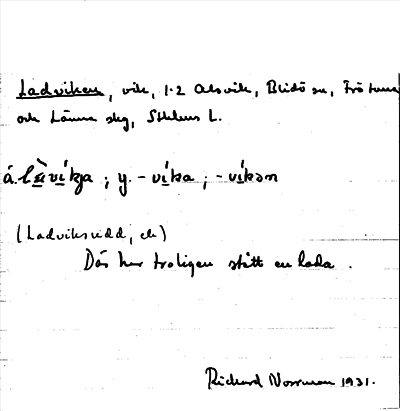 Ladviken, vik, 1.2 Alsvik, Blidö sn, Frötuna
och Länna skg, Sthlms L.
å. làvíkja; y. -víka; -víkən
(Ladviksudd, ek)
Där har troligen stått en lada.
Richard Norrman 1931.